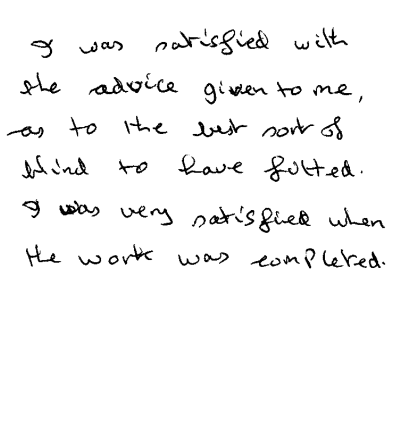 I was satisfied with
the advice given to me,
as to the best sort of
blind to have fitted.
I was very satisfied when
the work was completed.